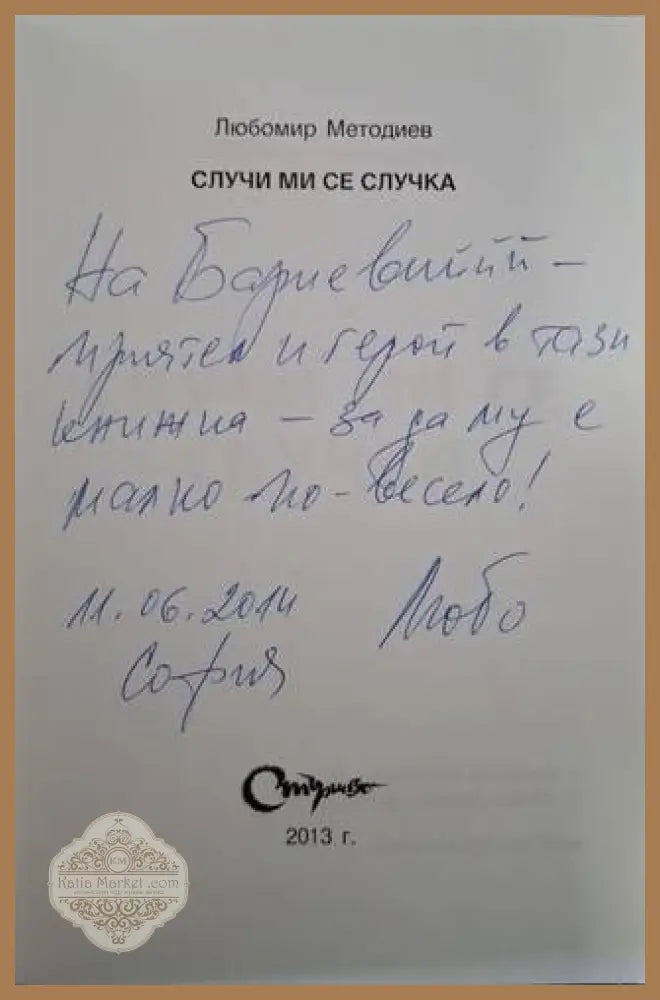 Любомир Методиев
СЛУЧИ МИ СЕ СЛУЧКА
На
приятел и герой в тази
книжка – за да му е
малко по-весело!
11.06.2014 Любо
София
2013 г.
KM
Katia Market .com